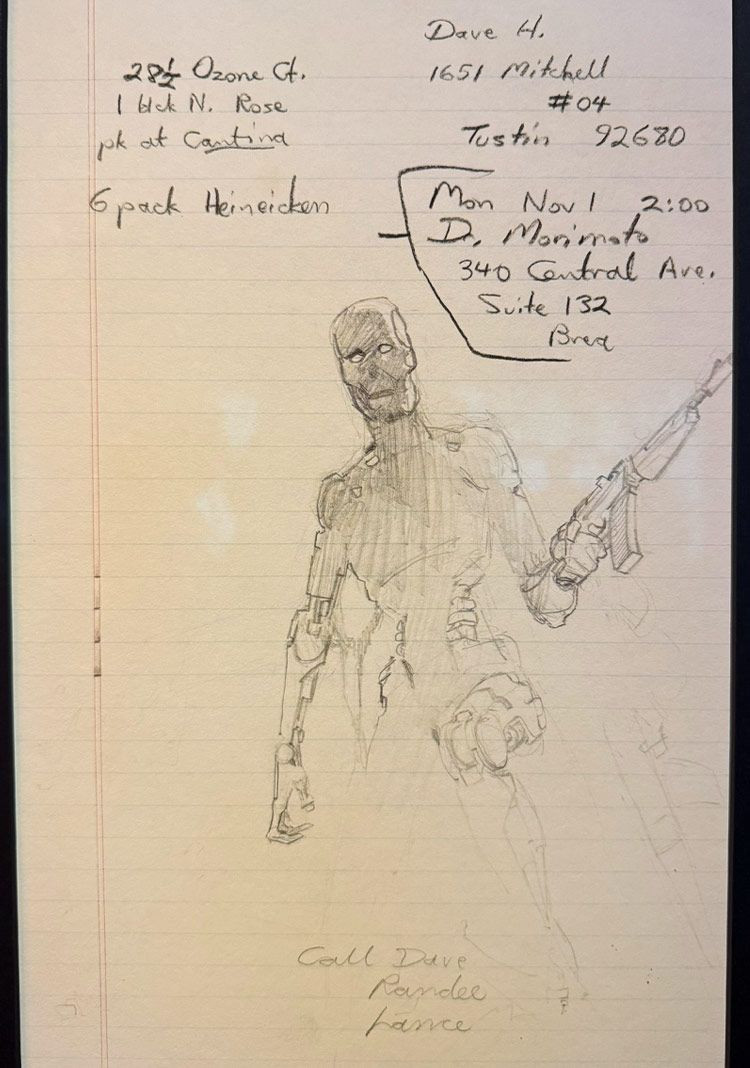 28½ Ozone Ct.
1 blck N. Rose
pk at Cantina
6 pack Heineicken
Dave H.
1651 Mitchell
#04
Tustin 92680
Mon Nov 1 2:00
Dr. Morimoto
340 Central Ave.
Suite 132
Brea
Call Dave
Randee
Lance